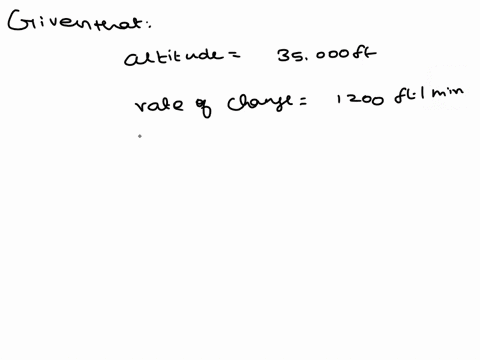 Given that:
altitude = 35.000 ft
rate of change = 1200 ft/min